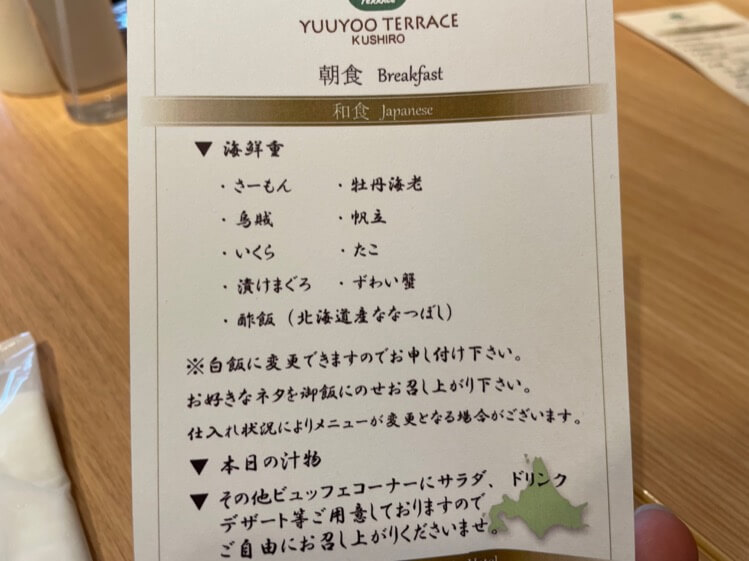 TERRACE
YUUYOO TERRACE
KUSHIRO
朝食 Breakfast
和食 Japanese
▼ 海鮮重
・さーもん ・牡丹海老
・烏賊 ・帆立
・いくら ・たこ
・漬けまぐろ ・ずわい蟹
・酢飯（北海道産ななつぼし）
※白飯に変更できますのでお申し付け下さい。
お好きなネタを御飯にのせお召し上がり下さい。
仕入れ状況によりメニューが変更となる場合がございます。
▼ 本日の汁物
▼ その他ビュッフェコーナーにサラダ、ドリンク
デザート等ご用意しておりますので
ご自由にお召し上がりくださいませ。